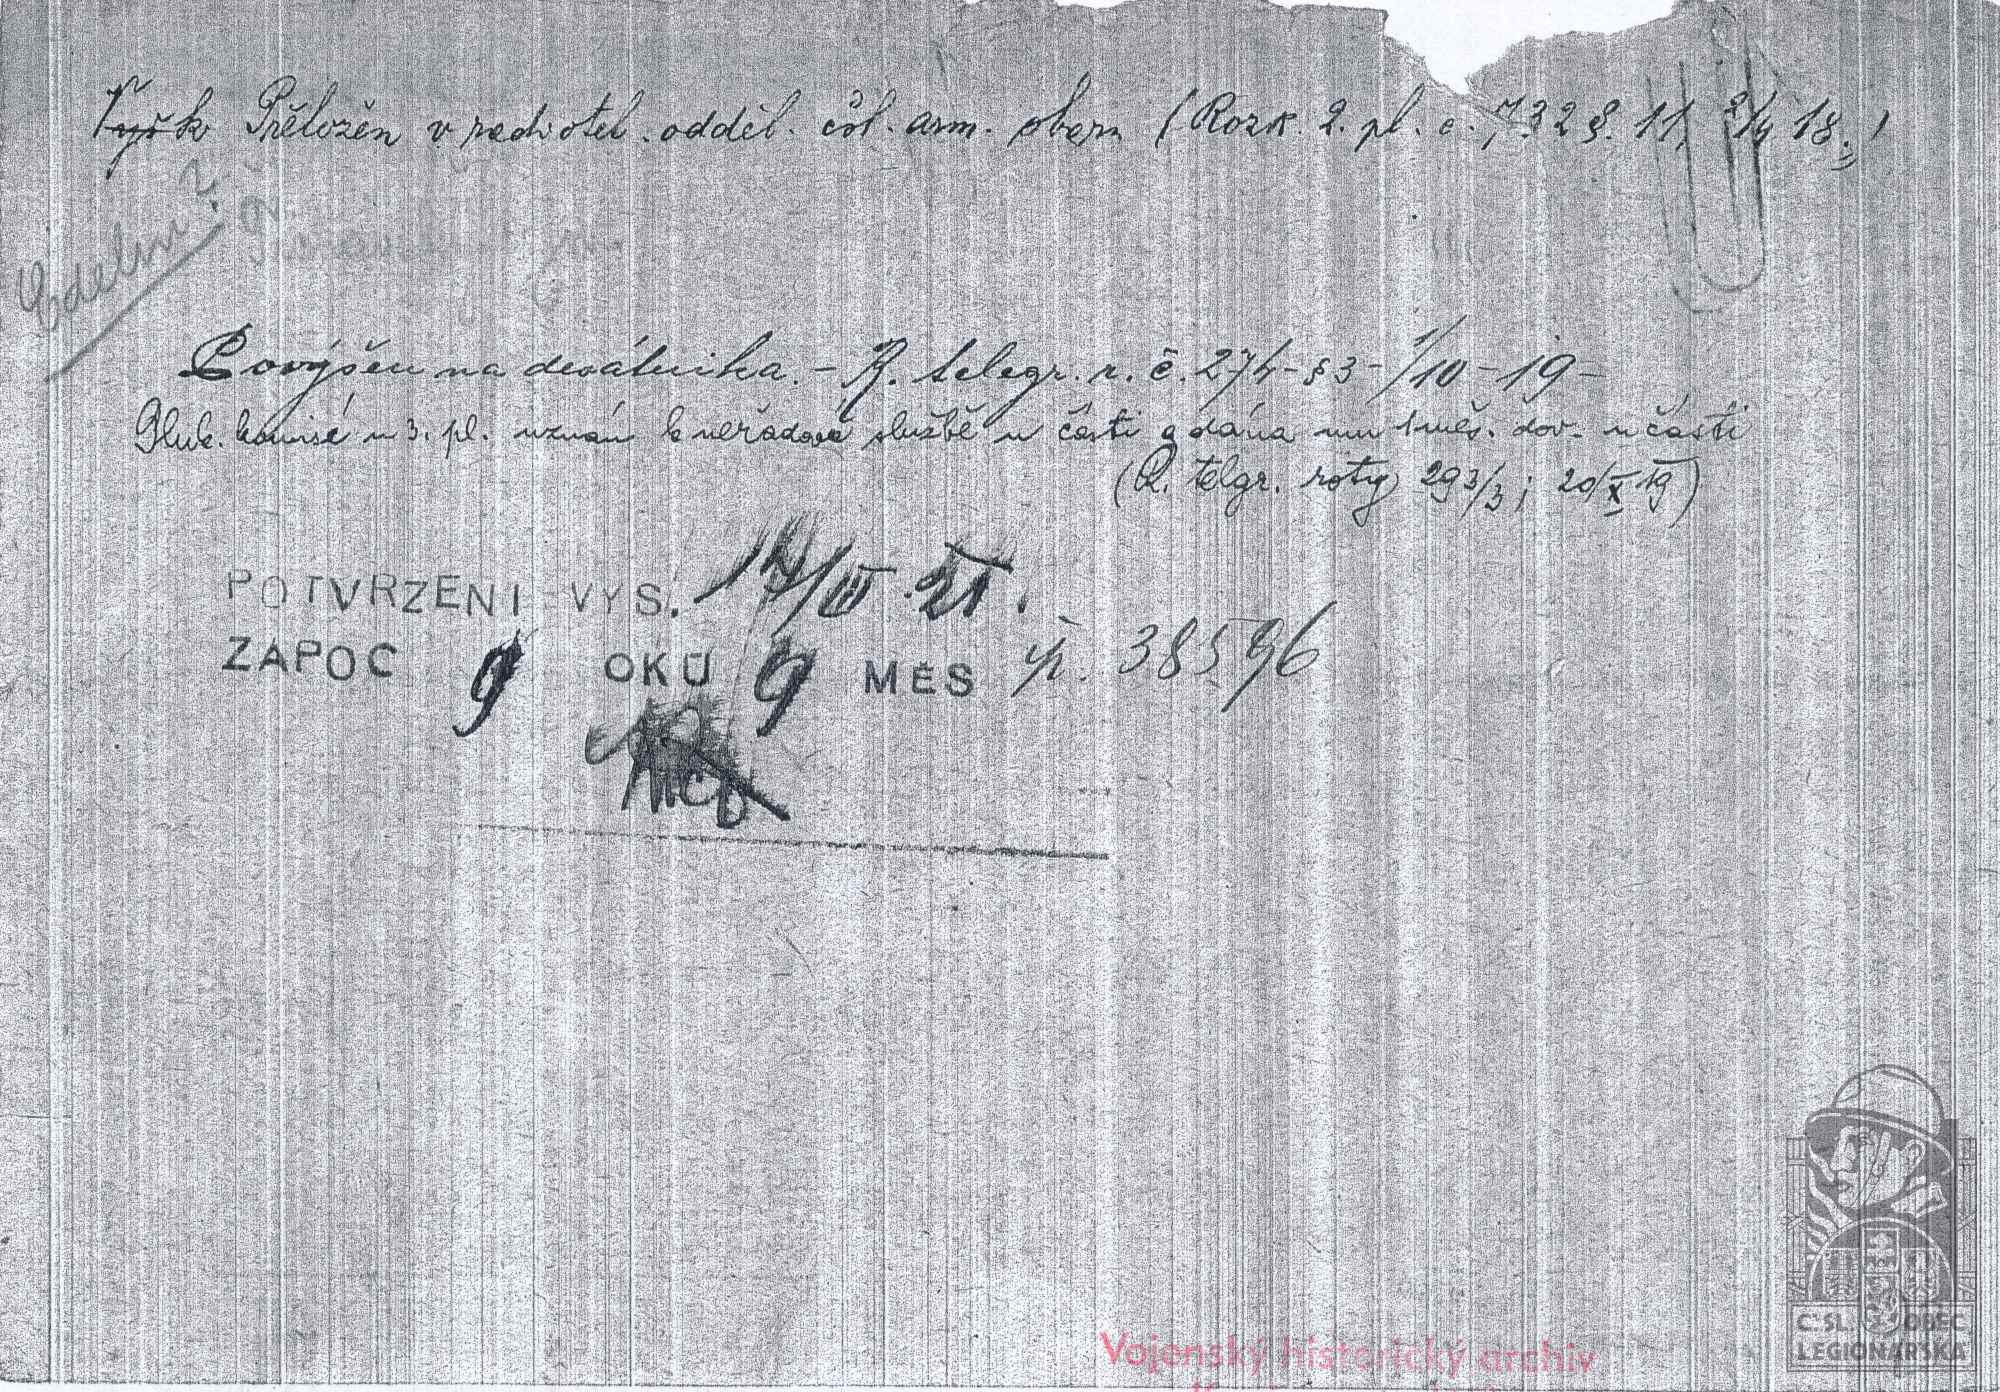 Přeložen v radiotel. odděl. čsl. arm. sboru (Rozk. 2. pl. č. 732 §. 11, 2/4 18.)
Edelm ?
Povýšen na desátníka. – R. telegr. r. č. 274 – §3 – 1/10 – 19 –
Hluk. komisé u 3. pl. uznán k neřadové službě u části a dána mu 1 měs. dov. u části
(R. telgr. roty 293/3; 20/X 19)
POTVRZENI VYS. 14/III. 21.
ZAPOC 9 OKŮ 9 MES čj. 38596
Vojenský historický archiv
Č.SL. OBEC
LEGIONÁŘSKÁ